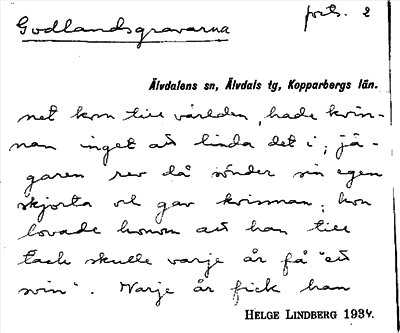 Godlandsgravarna
forts. 2
Älvdalens sn, Älvdals tg, Kopparbergs län.
net kom till världen, hade kvin-
nan inget att linda det i; jä-
garen rev då sönder sin egen
skjorta ock gav kvinnan; hon
lovade honom att han till
tack skulle varje år få "ett
svin". Varje år fick han
HELGE LINDBERG 1934.